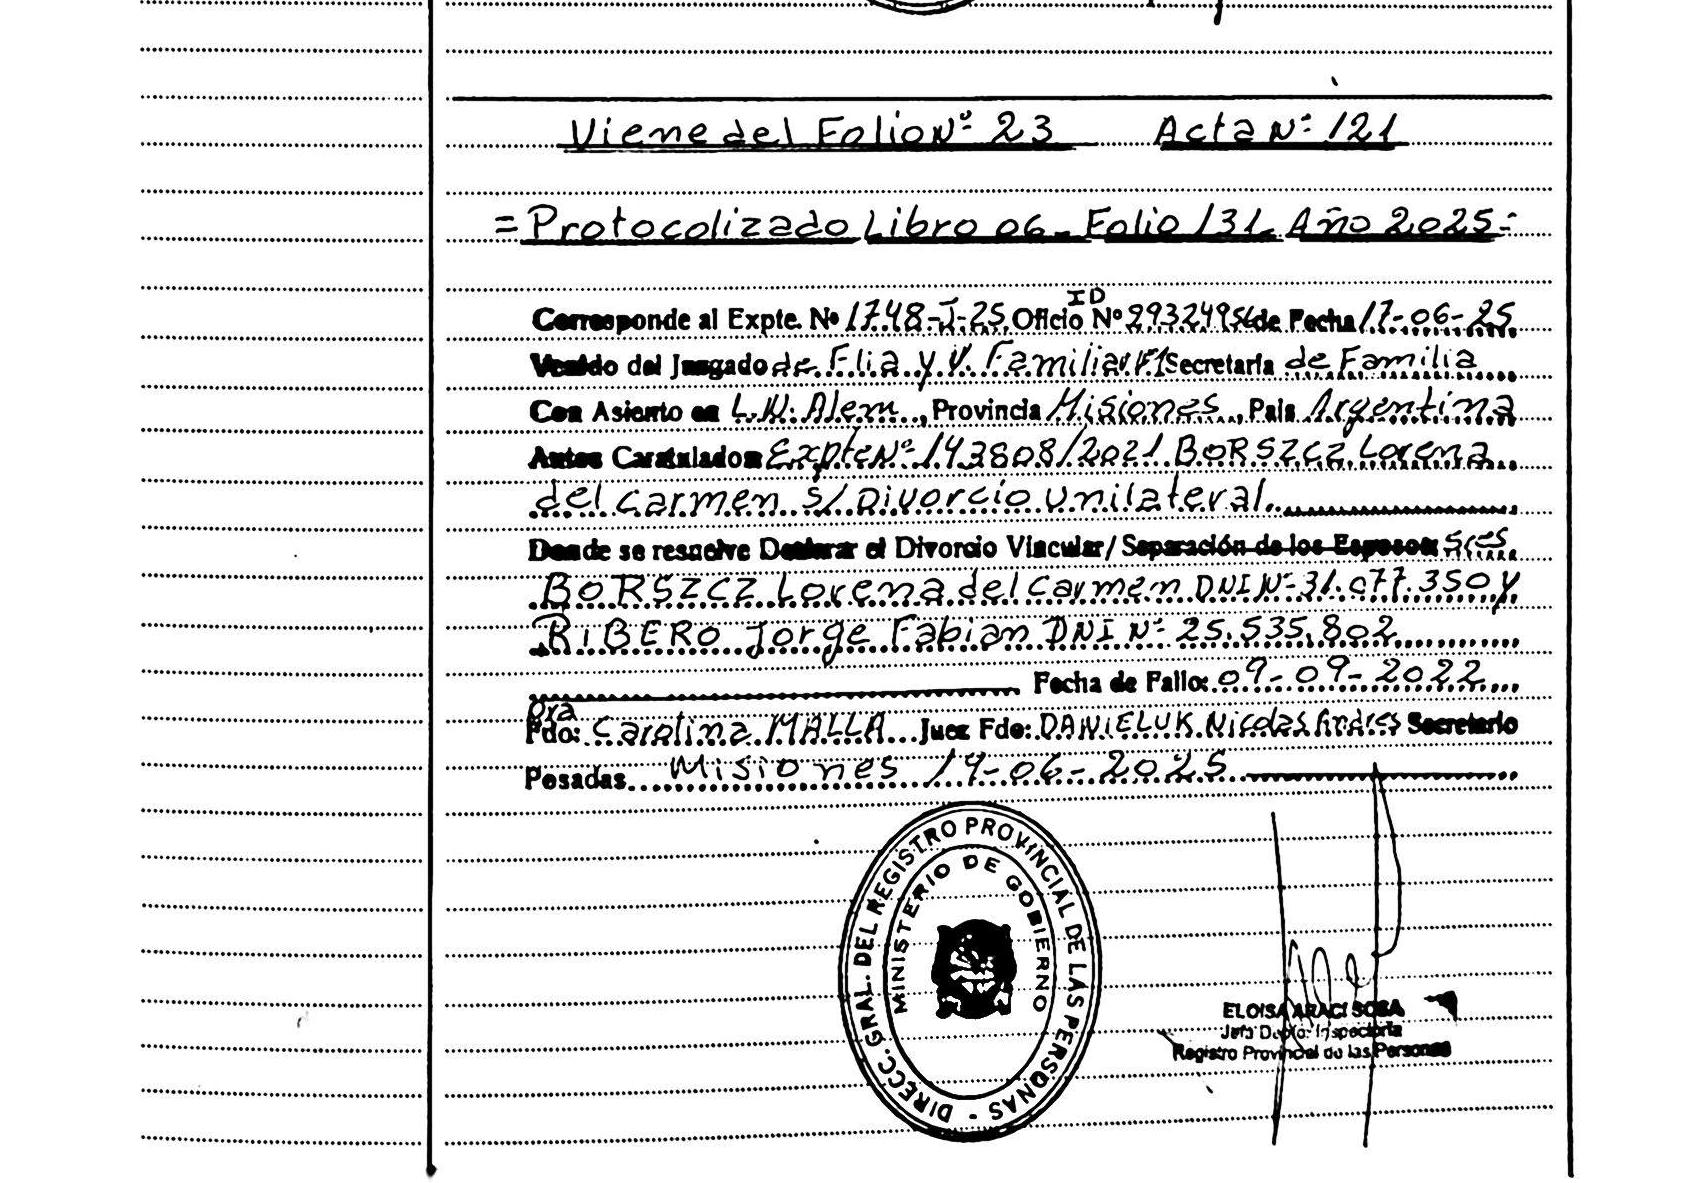 Viene del Folio Nº 23 Acta Nº 121
= Protocolizado Libro 06 - Folio 131 - Año 2025 =
ID
Corresponde al Expte. Nº 1748-J-25 Oficio Nº 29324956 de Fecha 17-06-25
Venido del Juzgado de Flia y V. Familiar Nº1 Secretaria de Familia
Con Asiento en L.N. Alem, Provincia Misiones, Pais Argentina
Autos Caratulados Expte Nº 143808/2021 BORSZCZ Lorena
del Carmen S/Divorcio Unilateral.
Donde se resuelve Declarar el Divorcio Vincular/Separación de los Esposos: Sres
BORSZCZ Lorena del Carmen DNI Nº 31.077.350 y
RIBERO Jorge Fabian DNI Nº 25.535.802
Fecha de Fallo: 09-09-2022
Dra
Fdo: Carolina MALLA Juez Fdo: DANIELUK Nicolas Andres Secretario
Posadas Misiones 19-06-2025
DIRECC. GRAL. DEL REGISTRO PROVINCIAL DE LAS PERSONAS -
MINISTERIO DE GOBIERNO
ELOISA ARACI SOSA
Jefa Depto. Inspectoria
Registro Provincial de las Personas